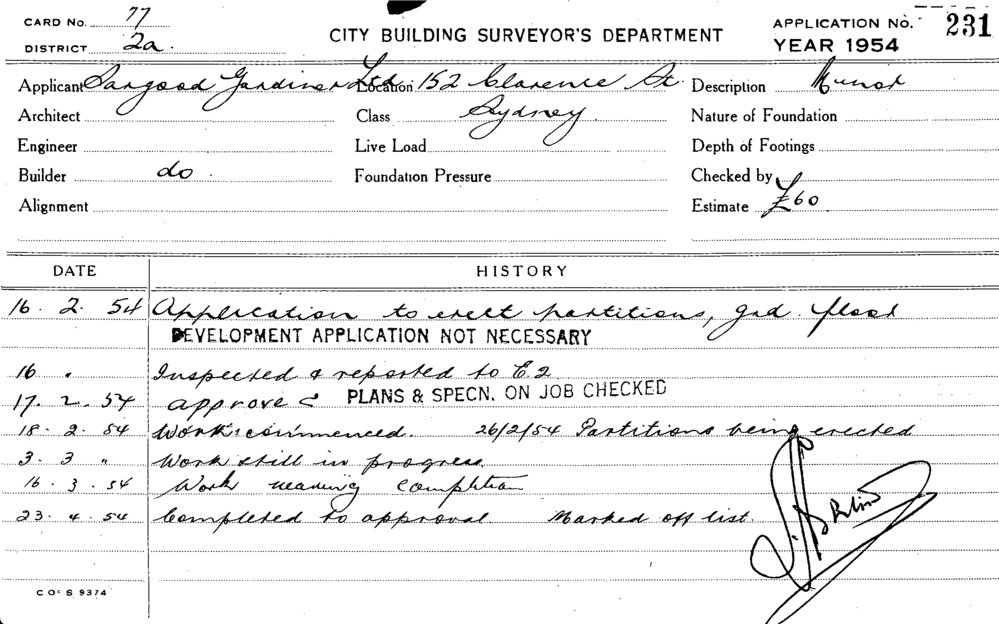 CARD No. 77
DISTRICT 2a.
CITY BUILDING SURVEYOR'S DEPARTMENT
APPLICATION No. 231
YEAR 1954
Applicant Sargood Gardiner Ltd Location 152 Clarence St. Description
Architect Class Sydney Nature of Foundation
Engineer Live Load Depth of Footings
Builder do. Foundation Pressure Checked by
Alignment Estimate £60
DATE HISTORY
16. 2. 54 Application to erect partitions, grd. floor
DEVELOPMENT APPLICATION NOT NECESSARY
16 " Inspected & reported to E.2
17. 2. 54 approved PLANS & SPECN. ON JOB CHECKED
18. 2. 54 Work commenced. 26/2/54 Partitions being erected
3. 3 " Work still in progress.
16. 3. 54 Work nearing completion
23. 4. 54 Completed to approval Marked off list.
C OF S 9374